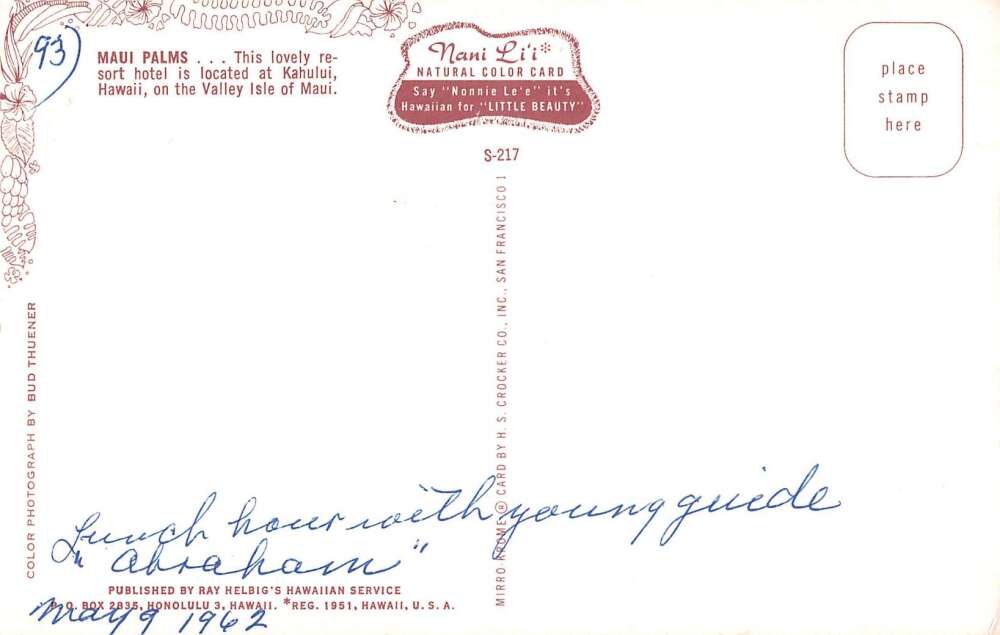 93
MAUI PALMS . . . This lovely re-
sort hotel is located at Kahului,
Hawaii, on the Valley Isle of Maui.
Nani Li'i*
NATURAL COLOR CARD
Say "Nonnie Le'e" it's
Hawaiian for "LITTLE BEAUTY"
S-217
place
stamp
here
COLOR PHOTOGRAPH BY BUD THUENER
MIRRO-KROME ® CARD BY H. S. CROCKER CO., INC., SAN FRANCISCO 1
Lunch hour with young guide
"Abraham"
PUBLISHED BY RAY HELBIG'S HAWAIIAN SERVICE
P.O. BOX 2835, HONOLULU 3, HAWAII. *REG. 1951, HAWAII, U. S. A.
May 9 1962